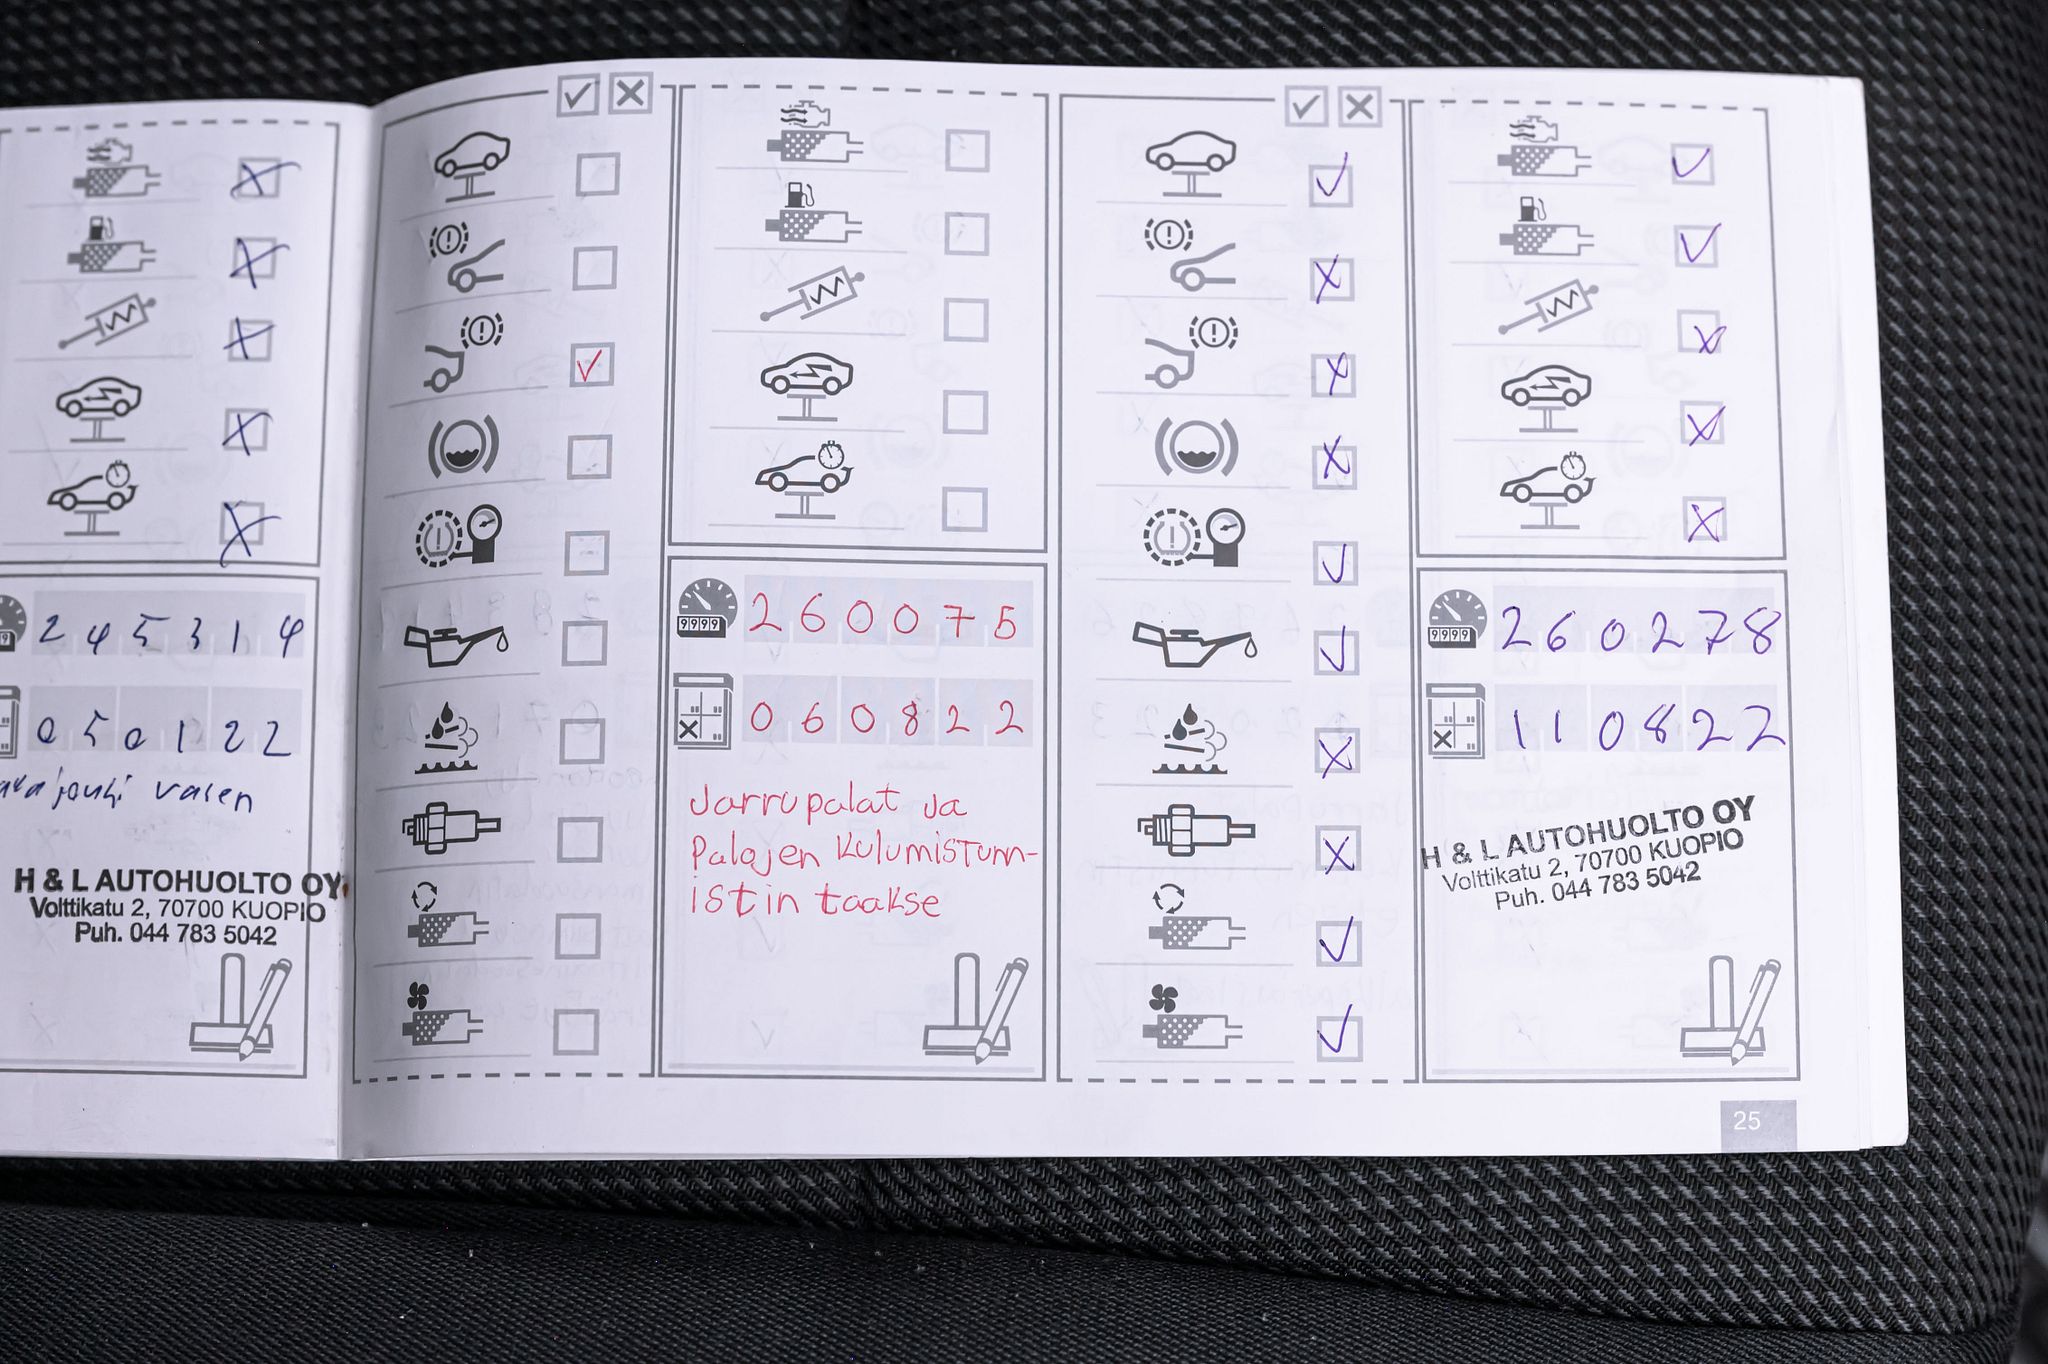 245314
050122
vasen
H & L AUTOHUOLTO OY
Volttikatu 2, 70700 KUOPIO
Puh. 044 783 5042
9999
260075
060822
Jarrupalat ja
Palojen kulumistunn-
istin taakse
9999
260278
110822
H & L AUTOHUOLTO OY
Volttikatu 2, 70700 KUOPIO
Puh. 044 783 5042
25